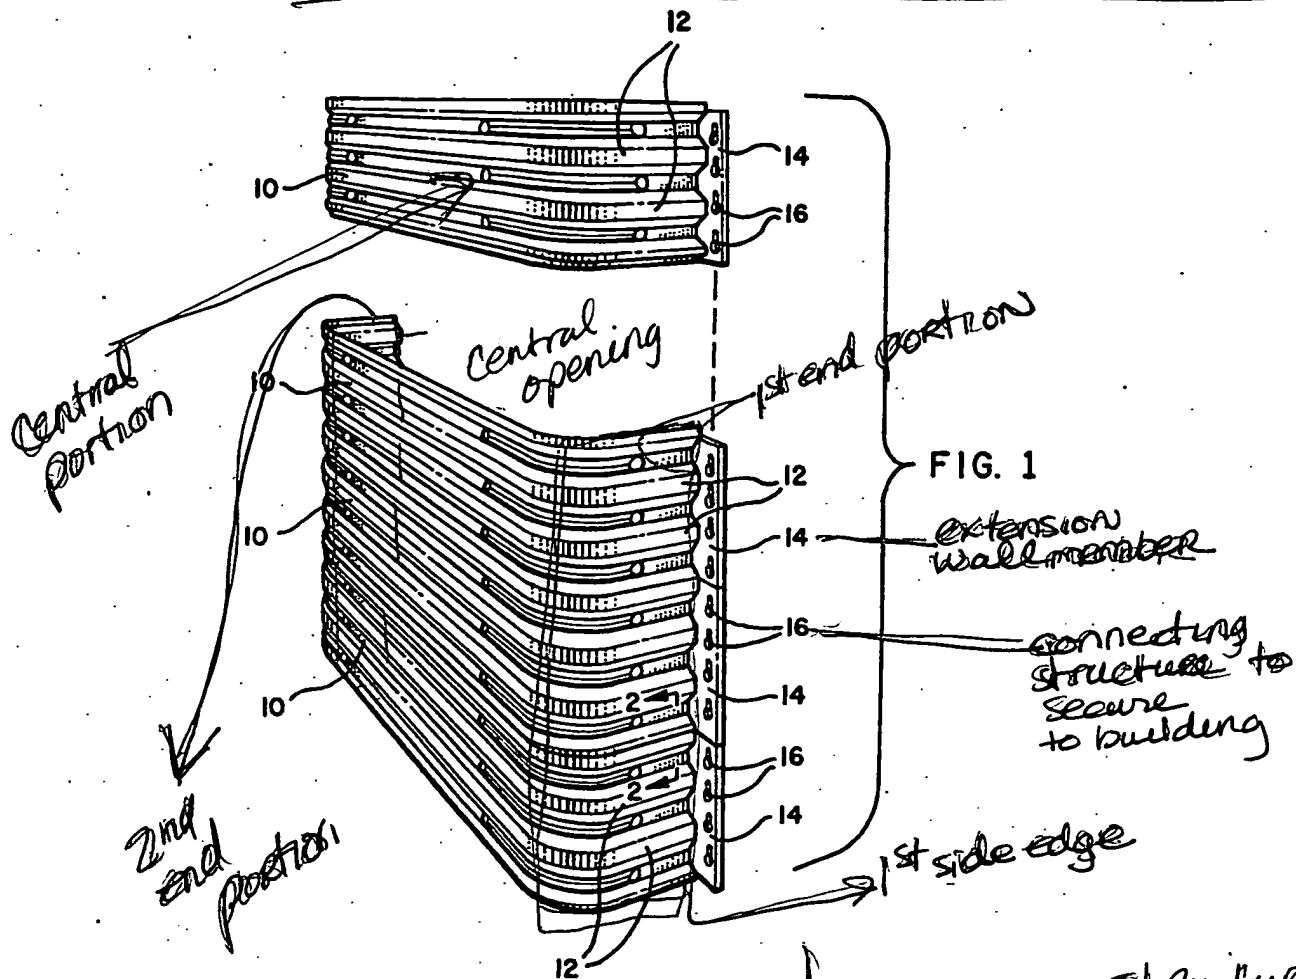 12
14
10
16
central
opening
1st end portion
central
portion
10
12
FIG. 1
14
extension
wall member
10
16
connecting
structure to
secure
to building
2
14
10
16
2
14
2nd
end
portion
1st side edge
12